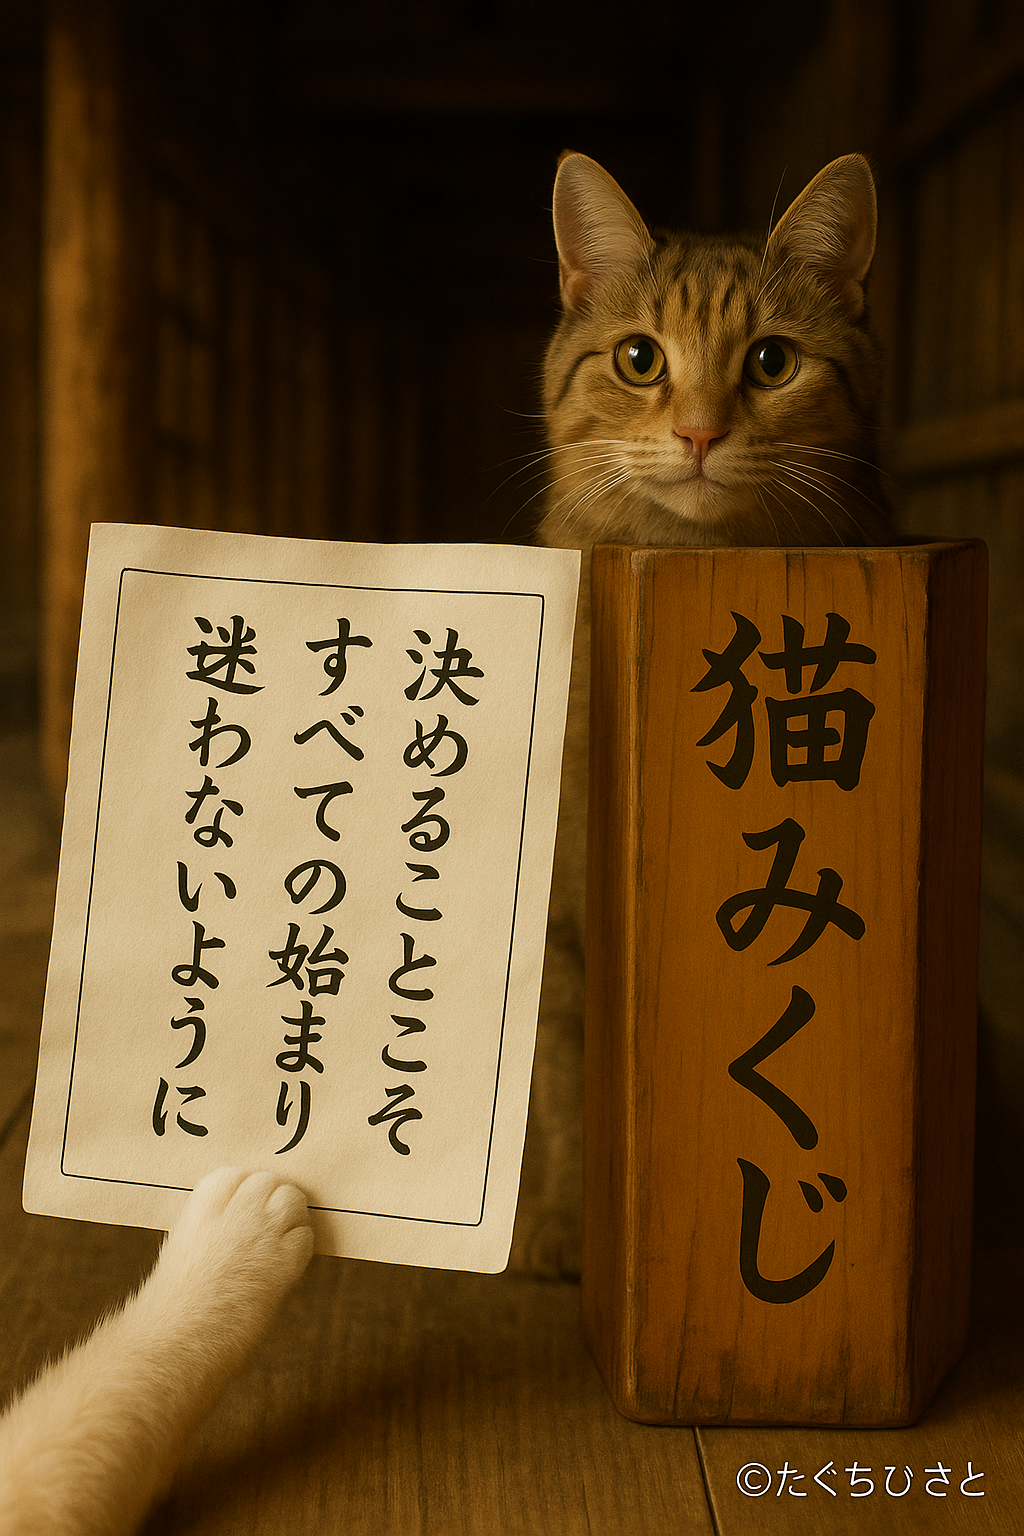 決めることこそ
すべての始まり
迷わないように
猫みくじ
©たぐちひさと